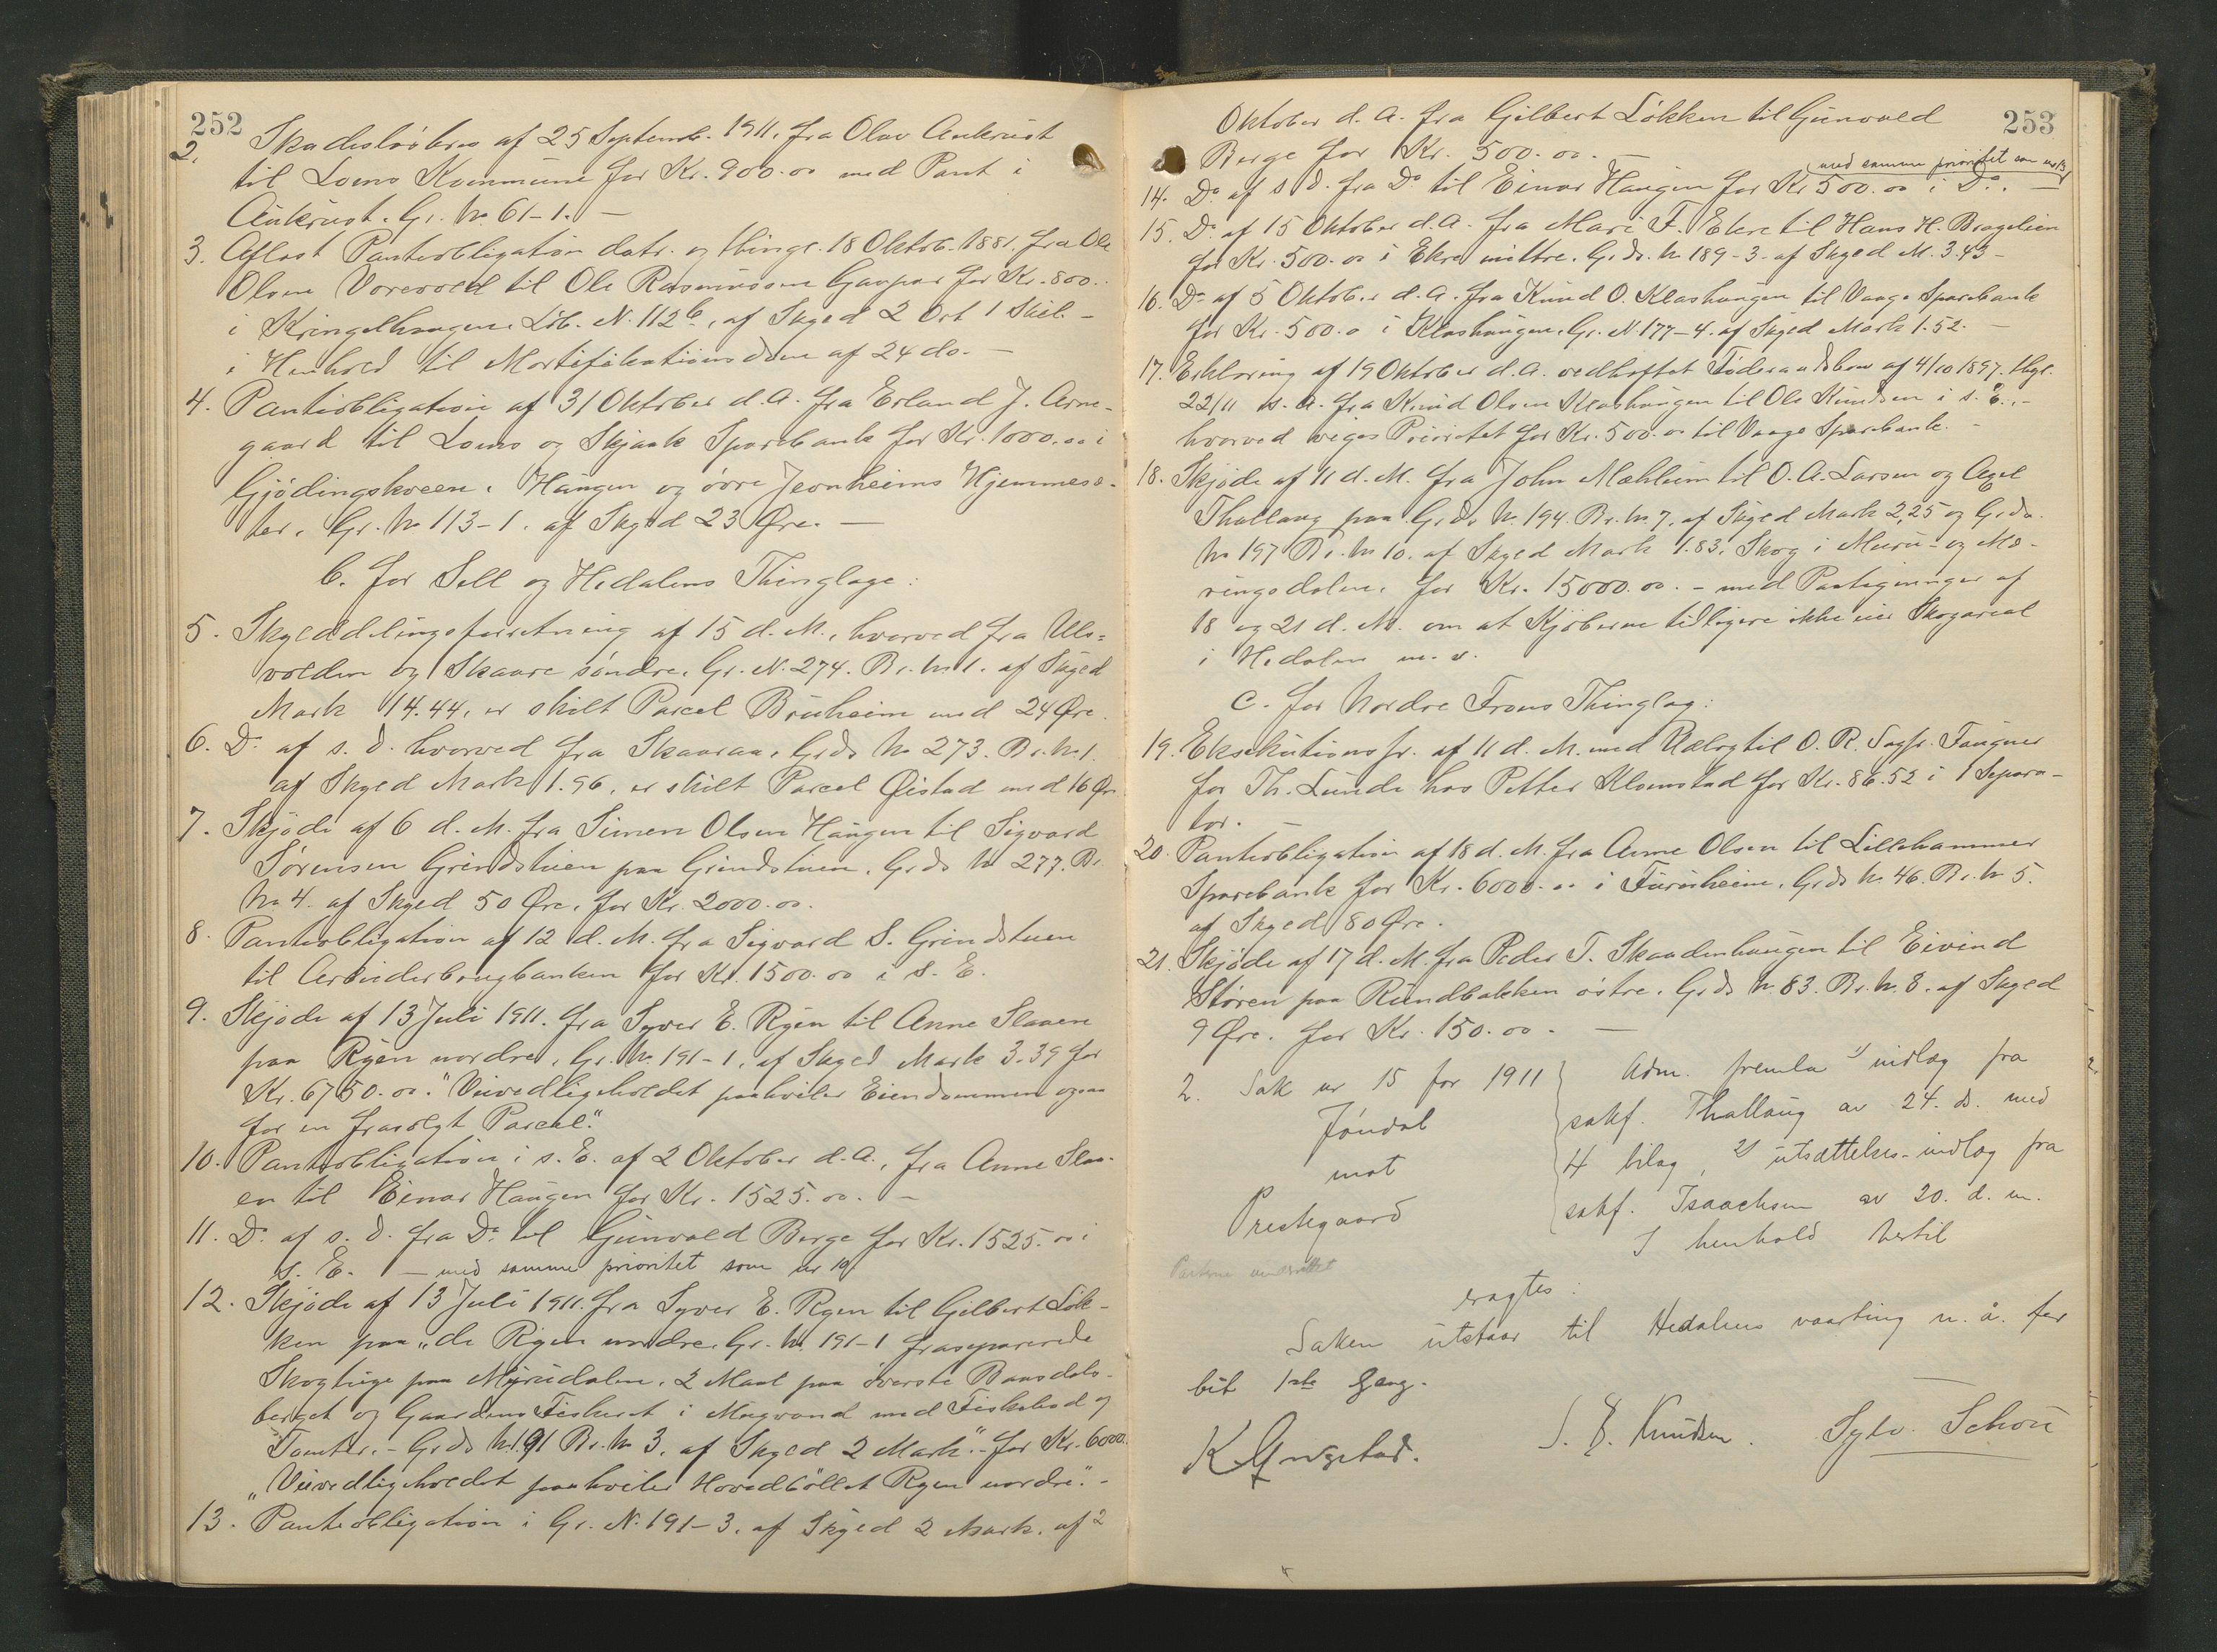 252
2. Skadesløsbrev af 25 Septemb. 1911. fra Olav Aukrust
til Loms Kommune for Kr. 900.00 med Pant i
Aukrust. Gr. No 61-1. —
3. Aflæst Panteobligation datr. og thingl. 18 Oktob. 1881. fra Ole
Olsen Vorevold til Ole Rasmussen Gaupar for Kr. 800..
i Kringelhaugen. Løb. N. 112b., af Skyld 2 Ort 1 Skil. -
i Henhold til Mortifikationsdom af 24 ds. —
4. Panteobligation af 31 Oktober d.A. fra Erland J. Arne-
gaard til Loms og Skjaak Sparebank for Kr. 1000.00 i
Gjødingskveen. Haugen og øvre Jevnheims Hjemmesæ-
ter. Gr. No 113-1. af Skyld 23 Øre. —
b. for Sell og Hedalens Thinglage:
5. Skylddelingsforretning af 15 d. M., hvorved fra Uls=
volden og Skaare søndre. Gr. N. 274. Br. No 1. af Skyld
Mark 14.44, er skilt Parcel Bruheim med 24 Øre.
6. Do af s. D. hvorved fra Skaaraa. Grds No 273. Br. No 1.
af Skyld Mark 1.96, er skilt Parcel Øistad med 16 Øre
7. Skjøde af 6 d. M. fra Simen Olsen Haugen til Sigvard
Sørensen Grindstuen paa Grindstuen. Grds No 277. Br.
No 4. af Skyld 50 Øre. for Kr. 2000.00.
8. Panteobligation af 12 d. M. fra Sigvard S. Grindstuen
til Arbeiderbrugbanken for Kr. 1500.00 i s. E.
9. Skjøde af 13 Juli 1911. fra Syver E. Ryen til Anne Slaaen
paa Ryen nordre, Gr. No 191-1, af Skyld Mark 3.39 for
Kr. 6750.00. "Veivedligeholdet paahviler Eiendommen ogsaa
for en frasolgt Parcel."
10. Panteobligation i s. E. af 2 Oktober d.A., fra Anne Slaa-
en til Einar Haugen for Kr. 1525.00. —
11. Do af s. D. fra Do til Gunvald Berge for Kr. 1525.00 i
s. E. — med samme prioritet som nr 10
12. Skjøde af 13 Juli 1911. fra Syver E. Ryen til Gilbert Løk-
ken paa "de Ryen nordre. Gr. No 191-1 fraseparerede
Skogteige paa Myrudalen. 2 Maal paa øverste Baasdals-
berget og Gaardens Fiskeret i Mugvand med Fiskebod og
Tomter. - Grds No 191 Br. No 3. af Skyld 2 Mark". - for Kr. 6000.
"Veivedligeholdet paahviler Hovedbøllet Ryen nordre". -
13. Panteobligation i Gr. N. 191-3. af Skyld 2 Mark. af 2
253
Oktober d. A. fra Gilbert Løkken til Gunvald
Berge for Kr. 500.00. —
med samme prioritet som nr 13
14. Do af s. D. fra Do til Einar Haugen for Kr 500.00 i Do. —
15. Do af 15 Oktober d.A. fra Mari F. Ekre til Hans H. Bragelien
for Kr. 500.00 i Ekre midtre. Grds. No 189-3- af Skyld M. 3.43-
16. Do af 5 Oktober d.A. fra Knud O. Kleshaugen til Vaage Sparebank
for Kr. 500.0 i Kleshaugen. Gr. N 177-4. af Skyld Mark 1.52. —
17. Erklæring af 19 Oktober d.A. vedhæftet Føderaadsbrev af 4/10 1897. thgl.
22/11 s. A. fra Knud Olsen Kleshaugen til Ole Knudsen i s. E. -
hvorved viges Prioritet for Kr. 500.00 til Vaage Sparebank. -
18. Skjøde af 11 d. M. fra John Mæhlum til O. A. Larsen og Axel
Thallaug paa Grds No. 194. Br. No 7. af Skyld Mark 2,25 og Grds
No 197 Br. No 10. af Skyld Mark 1.83. Skog i Muru- og Mæ-
ringsdalen. for Kr. 15000.00. - med Paategninger af
18 og 21 d. M. om at Kjøberne tidligere ikke eier Skogareal
i Hedalen m. v.
c. for Nordre Frons Thinglag:
19. Eksekutionsfr. af 11 d. M. med Udlæg til O. R. Sagfr. Faugner
for Th. Lunde hos Petter Klomstad for Kr. 86.52 i 1 Separa-
tor. —
20. Panteobligation af 18 d. M. fra Arne Olsen til Lillehammer
Sparebank for Kr. 6000.00 i Furuheim. Grds No. 46. Br. No 5.
af Skyld 80 Øre.
21. Skjøde af 17 d. M. fra Peder T. Skaadenhaugen til Eivind
Støren paa Rundbakken østre. Grds No. 83. Br. No. 8. af Skyld
9 Øre. for Kr. 150.00. —
2. Sak nr 15 for 1911
Jøndal
mot
Prestegaard
Adm. fremla 1) indlæg fra
sakf. Thallaug av 24. ds. med
4 bilag, 2) utsættelses-indlæg fra
sakf. Isaachsen av 20. d. m.
I henhold hertil
Parterne underrettet
eragtes:
Saken utstaar til Hedalens vaarting n. å. for
bit 1ste Gang.
K Angstad. S. E. Knudsen. Sylv. Schou